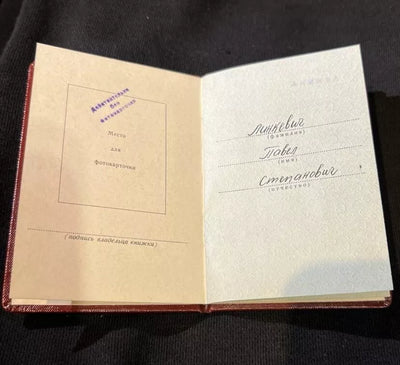 Действительно
без
фотокарточки
Место
для
фотокарточки
(подпись владельца книжки)
Линкевич
(фамилия)
Павел
(имя)
Степанович
(отчество)